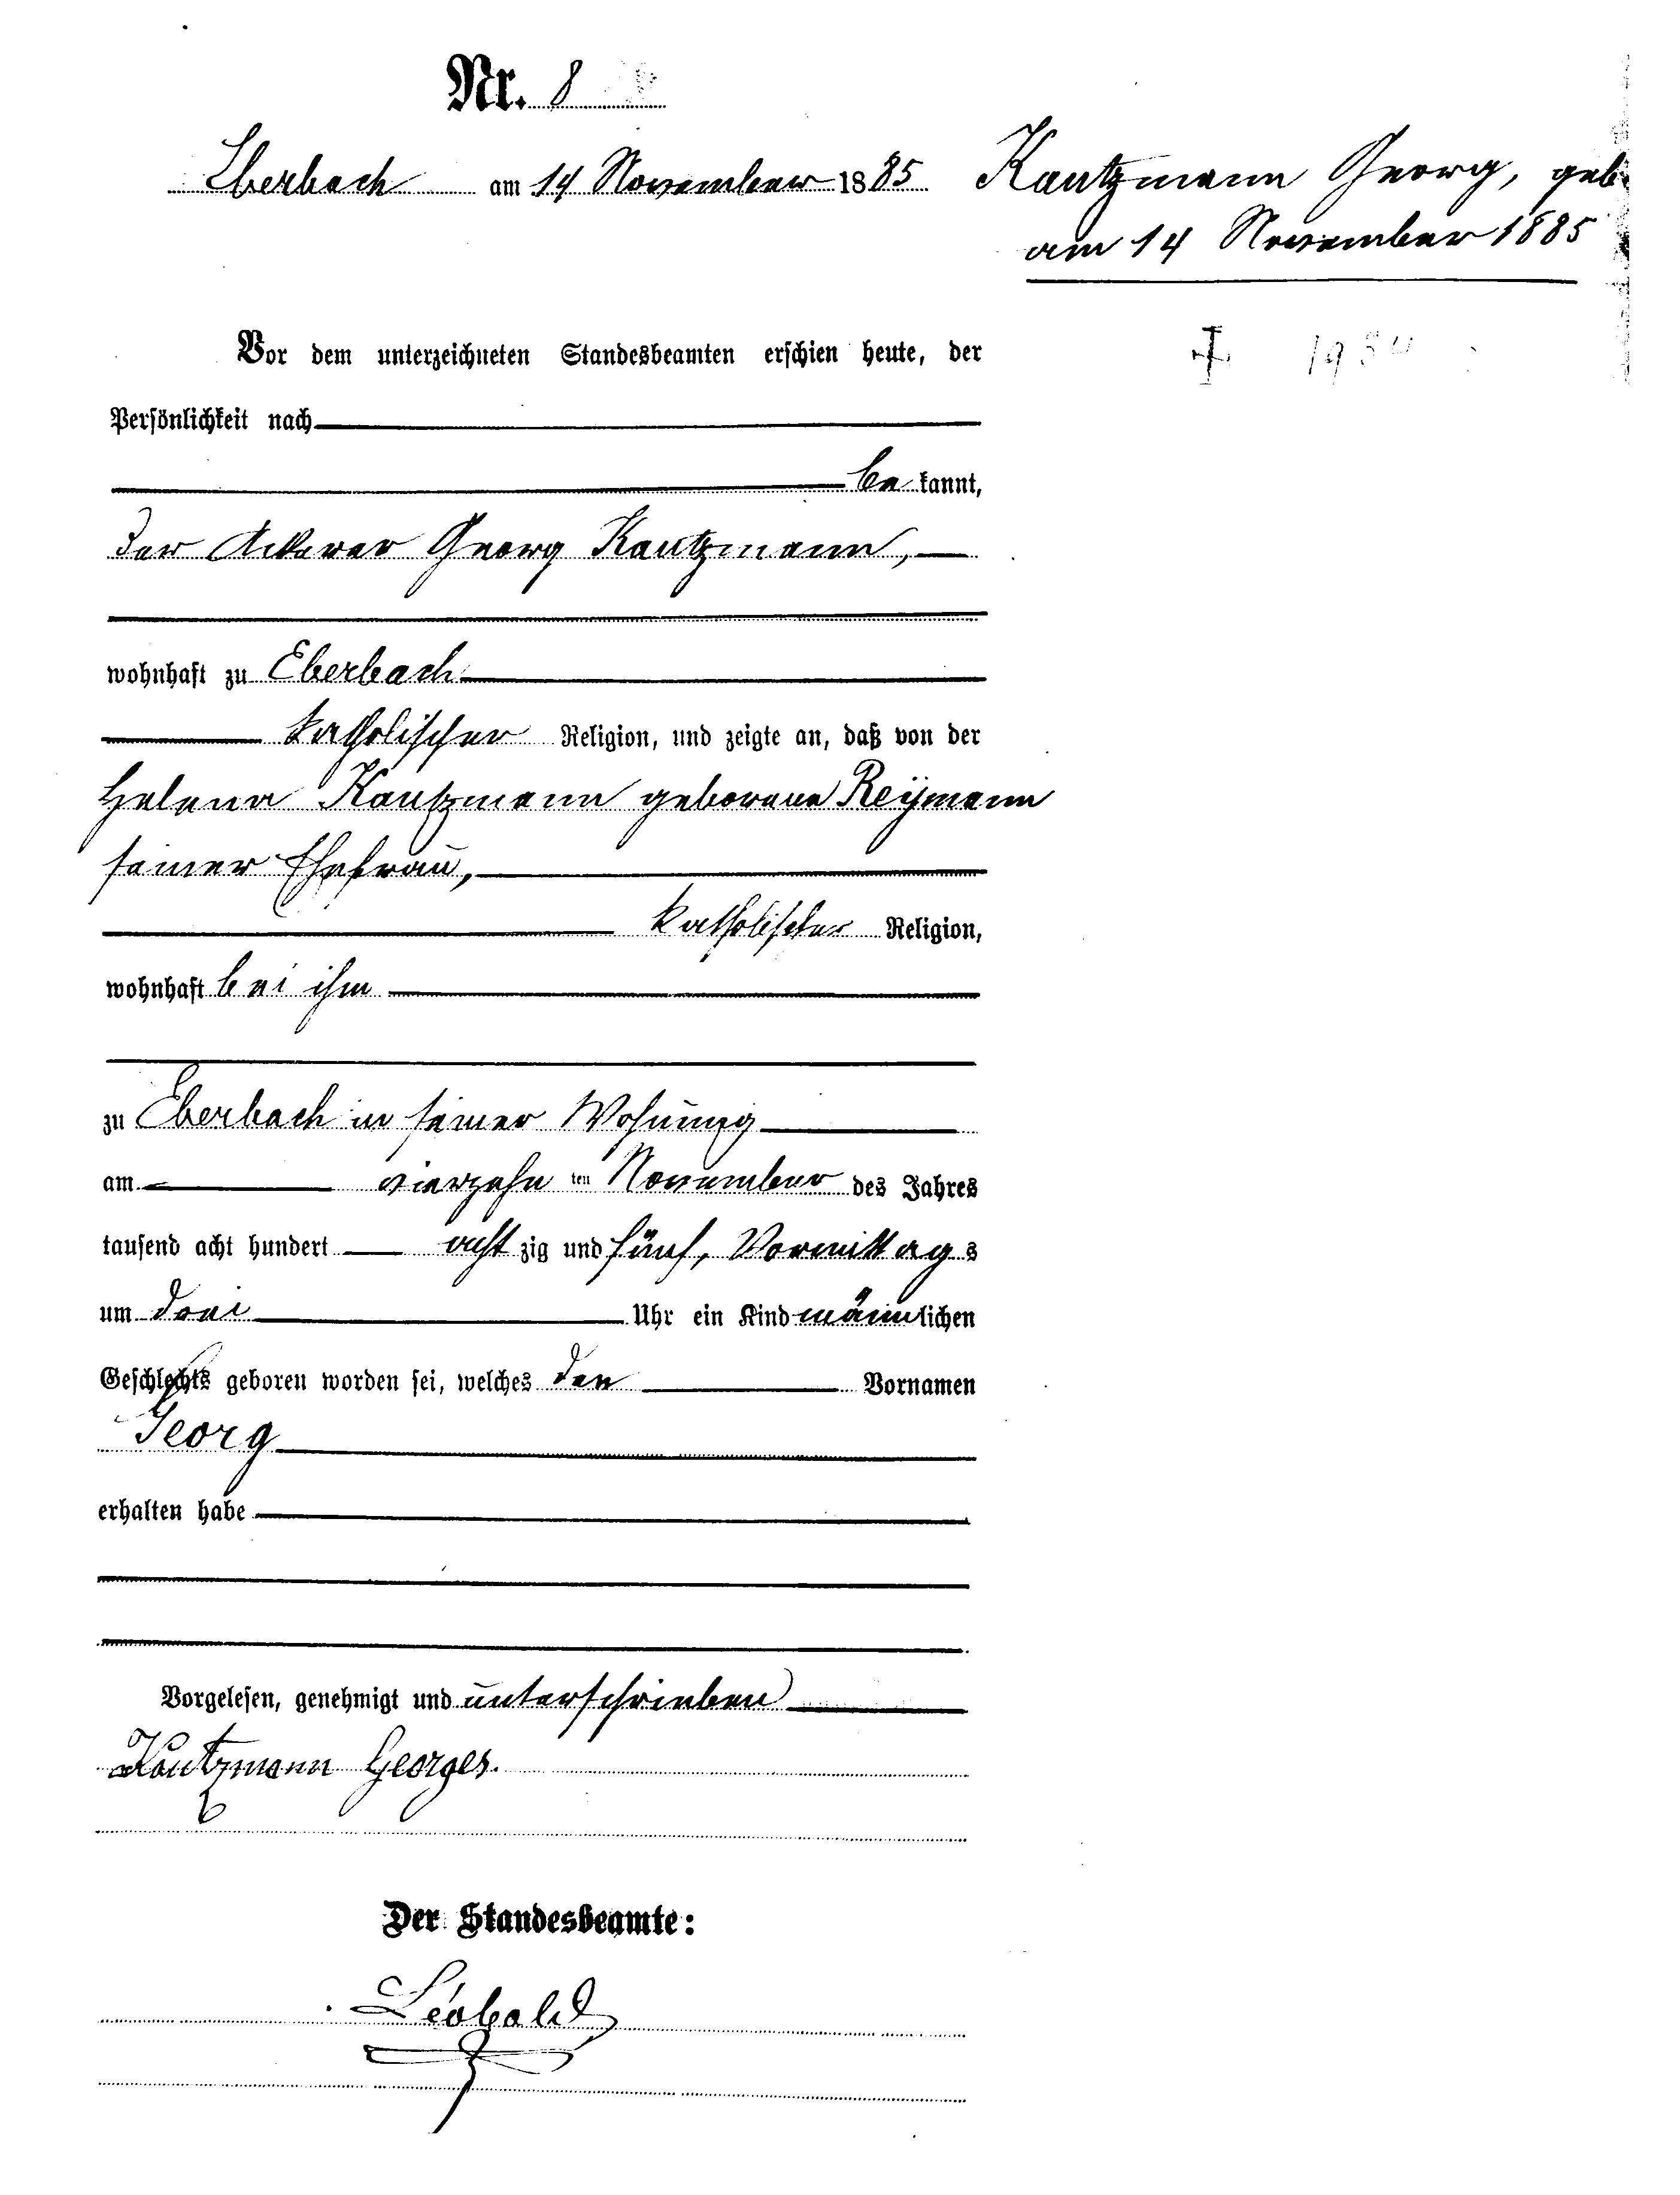 Nr. 8
Eberbach am 14 November 1885
Kautzmann Georg, geb.
am 14 November 1885
Vor dem unterzeichneten Standesbeamten erschien heute, der
Persönlichkeit nach
bekannt,
der Ackerer Georg Kautzmann,
wohnhaft zu Eberbach
katholischer Religion, und zeigte an, daß von der
Helena Kautzmann geborene Reÿmann
seiner Ehefrau,
katholischer Religion,
wohnhaft bei ihm
zu Eberbach in seiner Wohnung
am vierzehnten November des Jahres
tausend acht hundert achtzig und fünf, Vormittags
um drei Uhr ein Kind männlichen
Geschlechts geboren worden sei, welches den Vornamen
Georg
erhalten habe
Vorgelesen, genehmigt und unterschrieben
Kautzmann Georges.
Der Standesbeamte:
Léobold